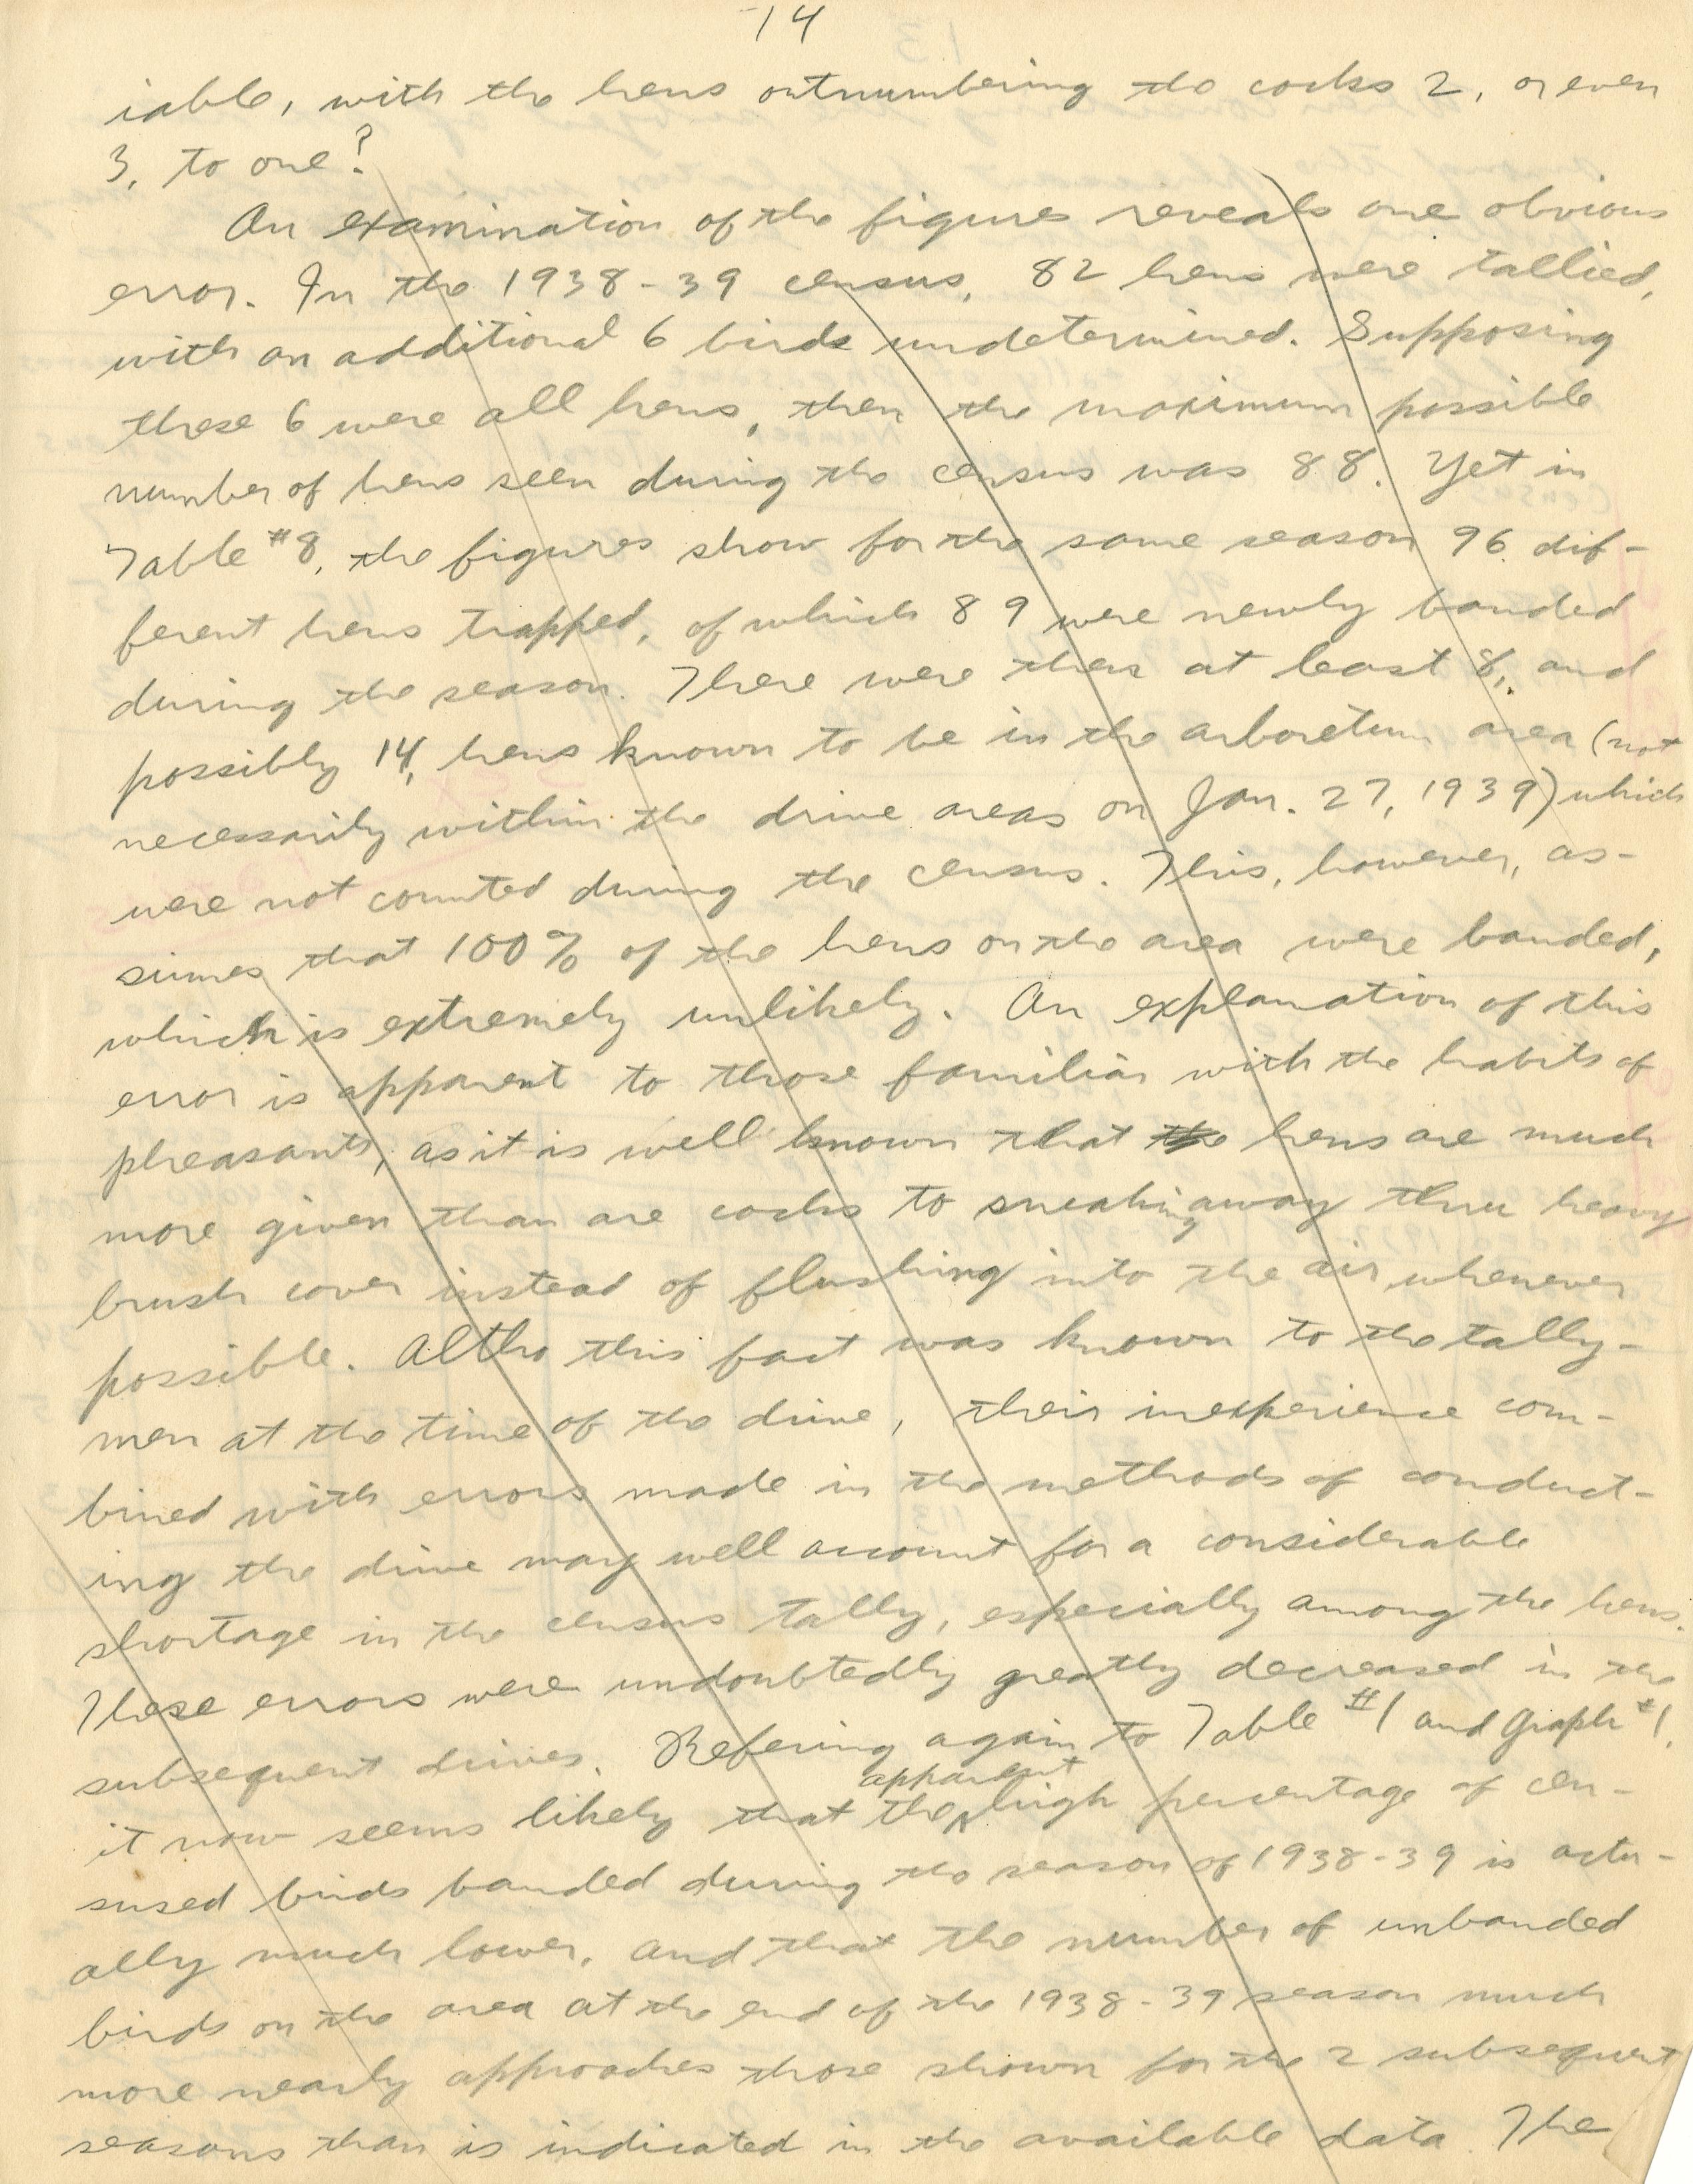 14
iable, with the hens outnumbering the cocks 2, or even
3, to one?
An examination of the figures reveals one obvious
error. In the 1938-39 census, 82 hens were tallied,
with an additional 6 birds undetermined. Supposing
these 6 were all hens, then the maximum possible
number of hens seen during the census was 88. Yet in
Table #8, the figures show for the same season 96 dif-
ferent hens trapped, of which 89 were newly banded
during the season. There were then at least 8, and
possibly 14, hens known to be in the arboretum area (not
necessarily within the drive areas on Jan. 27, 1939) which
were not counted during the census. This, however, as-
sumes that 100% of the hens on the area were banded,
which is extremely unlikely. An explanation of this
error is apparent to those familiar with the habits of
pheasants, as it is well known that the hens are much
more given than are cocks to sneaking away thru heavy
brush cover instead of flushing into the air whenever
possible. Altho this fact was known to the tally-
men at the time of the drive, their inexperience com-
bined with errors made in the methods of conduct-
ing the drive may well account for a considerable
shortage in the census tally, especially among the hens.
These errors were undoubtedly greatly decreased in the
subsequent drives. Refering again to Table #1 and Graph #1,
apparent
it now seems likely that the high percentage of cen-
sused birds banded during the season of 1938-39 is actu-
ally much lower, and that the number of unbanded
birds on the area at the end of the 1938-39 season much
more nearly approaches those shown for the 2 subsequent
seasons than is indicated in the available data. The